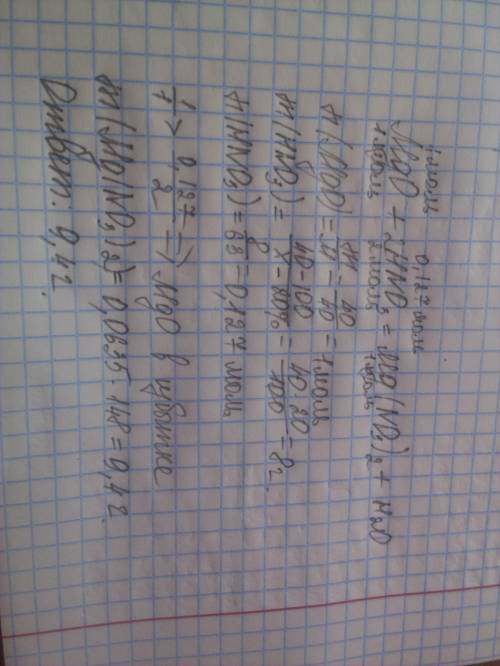 1 моль 0,127 моль
MgO + 2HNO₃ = Mg(NO₃)₂ + H₂O
1 моль 2 моль 1 моль
n(MgO) = m/M = 40/40 = 1 моль
m(HNO₃) = 40 - 100 / x - 20% = 40·20/100 = 8 г.
n(HNO₃) = 8/63 = 0,127 моль
1/1 > 0,127/2 → MgO в избытке
m(Mg(NO₃)₂) = 0,0635 · 148 = 9,4 г.
Ответ: 9,4 г.